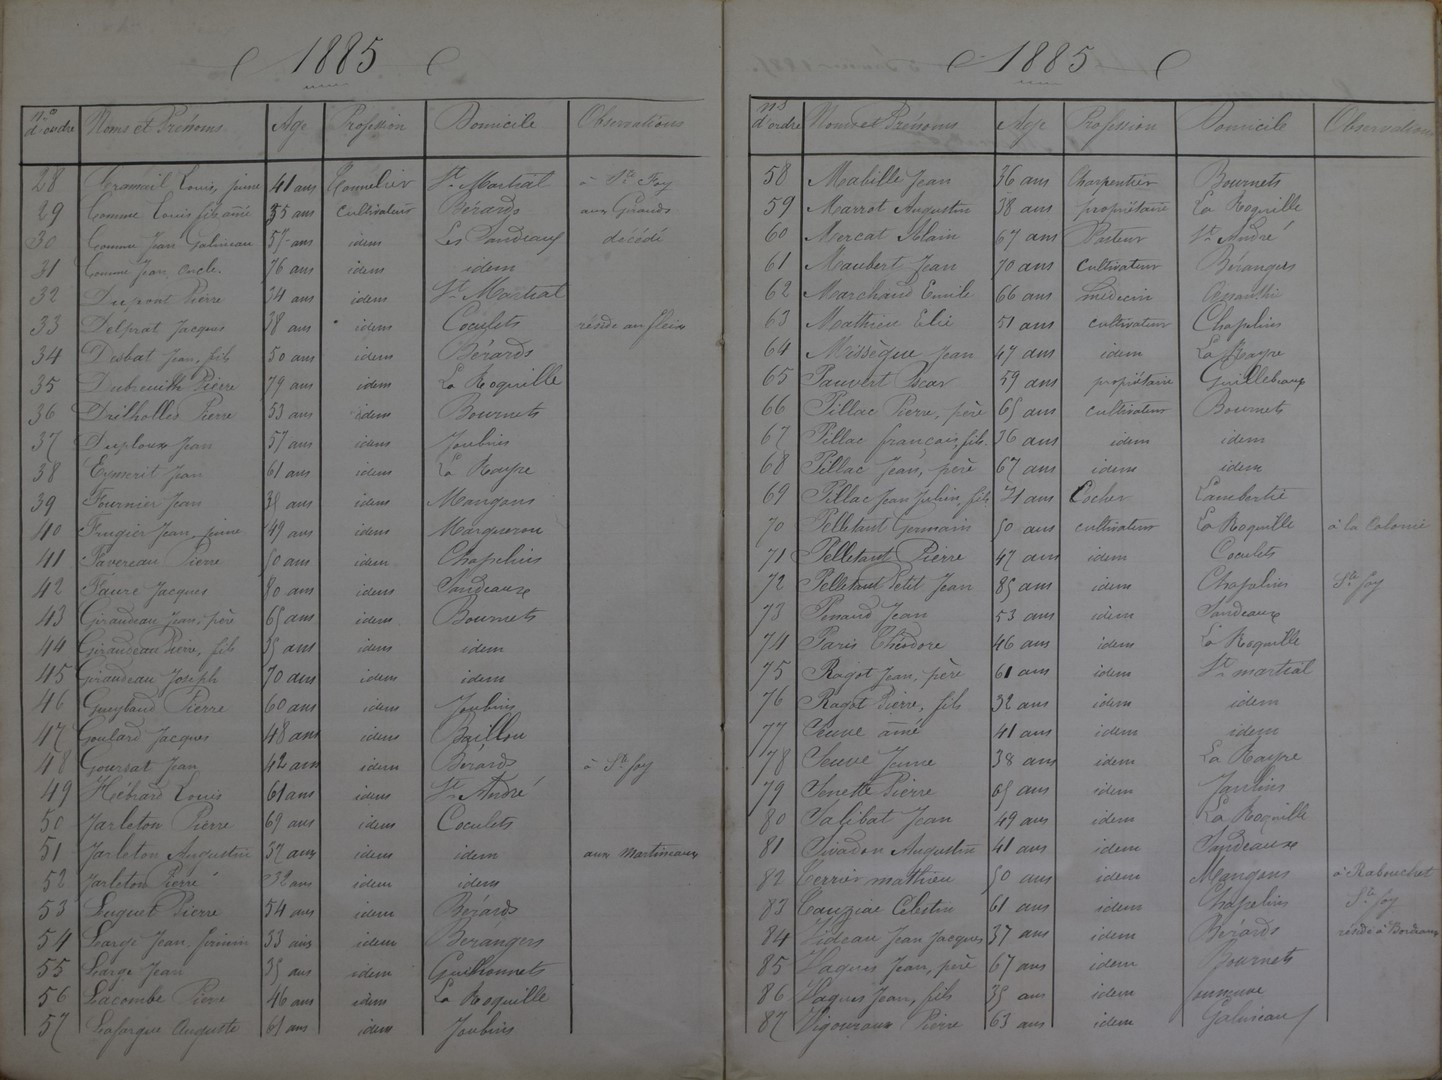 1885
nos d'ordre Noms et Prénoms Age Profession Domicile Observations
28 Louis, jeune 41 ans Tonnelier St Martial à Ste Foy
29 Comme Louis fils aîné 35 ans cultivateur Bérards aux Girauds
30 Comme Jean Galineau 57 ans idem Les Sandeaux décédé
31 Comme Jean, oncle 76 ans idem idem
32 Dupont Pierre 34 ans idem St Martial
33 Delprat Jacques 38 ans idem Coculets réside au fleix
34 Disbat Jean, fils 50 ans idem Bérards
35 Dubreuilh Pierre 79 ans idem La Roquille
36 Dreilholles Pierre 53 ans idem Bournets
37 Duploux Jean 57 ans idem Joubins
38 Eymerit Jean 61 ans idem La Rayre
39 Fournier Jean idem Mangons
40 Frugier Jean, jeune 49 ans idem
41 Favereau Pierre 50 ans idem Chapelins
42 Faure Jacques 80 ans idem Sandeaux
43 Giraudeau Jean, père 65 ans idem Bournets
44 Giraudeau Pierre, fils 35 ans idem idem
45 Giraudeau Joseph 70 ans idem idem
46 Pierre 60 ans idem Joubins
47 Goulard Jacques 48 ans idem Baillou
48 Goursat Jean 42 ans idem Bérards à Ste foy
49 Hébrard Louis 61 ans idem St André
50 Jarleton Pierre 69 ans idem Coculets
51 Jarleton Augustin 37 ans idem idem aux Martineaux
52 Jarleton Pierre 32 ans idem idem
53 Luquet Pierre 54 ans idem Bérards
54 Large Jean, 33 ans idem Bérangers
55 Large Jean 35 ans idem Guilhonnets
56 Lacombe Pierre 46 ans idem La Roquille
57 Lafargue Auguste 61 ans idem Joubins
1885
nos d'ordre Noms et Prénoms Age Profession Domicile Observations
58 Mabille Jean 36 ans Charpentier Bournets
59 Marrot Augustin 38 ans propriétaire La Roquille
60 Mercat Alain 67 ans Pasteur St André
61 Maubert Jean 70 ans Cultivateur Bérangers
62 Marchand Emile 66 ans médecin
63 Mathieu Elie 51 ans cultivateur Chapelins
64 Missèque Jean 47 ans idem La Rayre
65 Pauvert Oscar 59 ans propriétaire Guillebeaux
66 Pillac Pierre, père 65 ans cultivateur Bournets
67 Pillac françois, fils 36 ans idem idem
68 Pillac Jean, père 67 ans idem idem
69 Pillac Jean Julien, fils 31 ans Cocher Lambertie
70 Pelletant Germain 50 ans cultivateur La Roquille à la Colonie
71 Pelletant Pierre 47 ans idem Coculets
72 Pelletant Petit Jean 85 ans idem Chapelins Ste foy
73 Pinaud Jean 53 ans idem Sandeaux
74 Paris Théodore 46 ans idem La Roquille
75 Ragot Jean, père 61 ans idem St martial
76 Ragot Pierre, fils 32 ans idem idem
77 Seuve aîné 41 ans idem idem
78 Seuve Jeune 38 ans idem La Rayre
79 Sonette Pierre 65 ans idem
80 Salibat Jean 49 ans idem La Roquille
81 Sivadon Augustin 41 ans idem Sandeaux
82 Terrier mathieu 50 ans idem Mangons à Rabouchet
83 Tauziac Celestin 61 ans idem Chapelins Ste foy
84 Videau Jean Jacques 37 ans idem Bérards réside à Bordeaux
85 Vaques Jean, père 67 ans idem Bournets
86 Vaques Jean, fils 35 ans idem
87 Vigouroux Pierre 63 ans idem Galineau